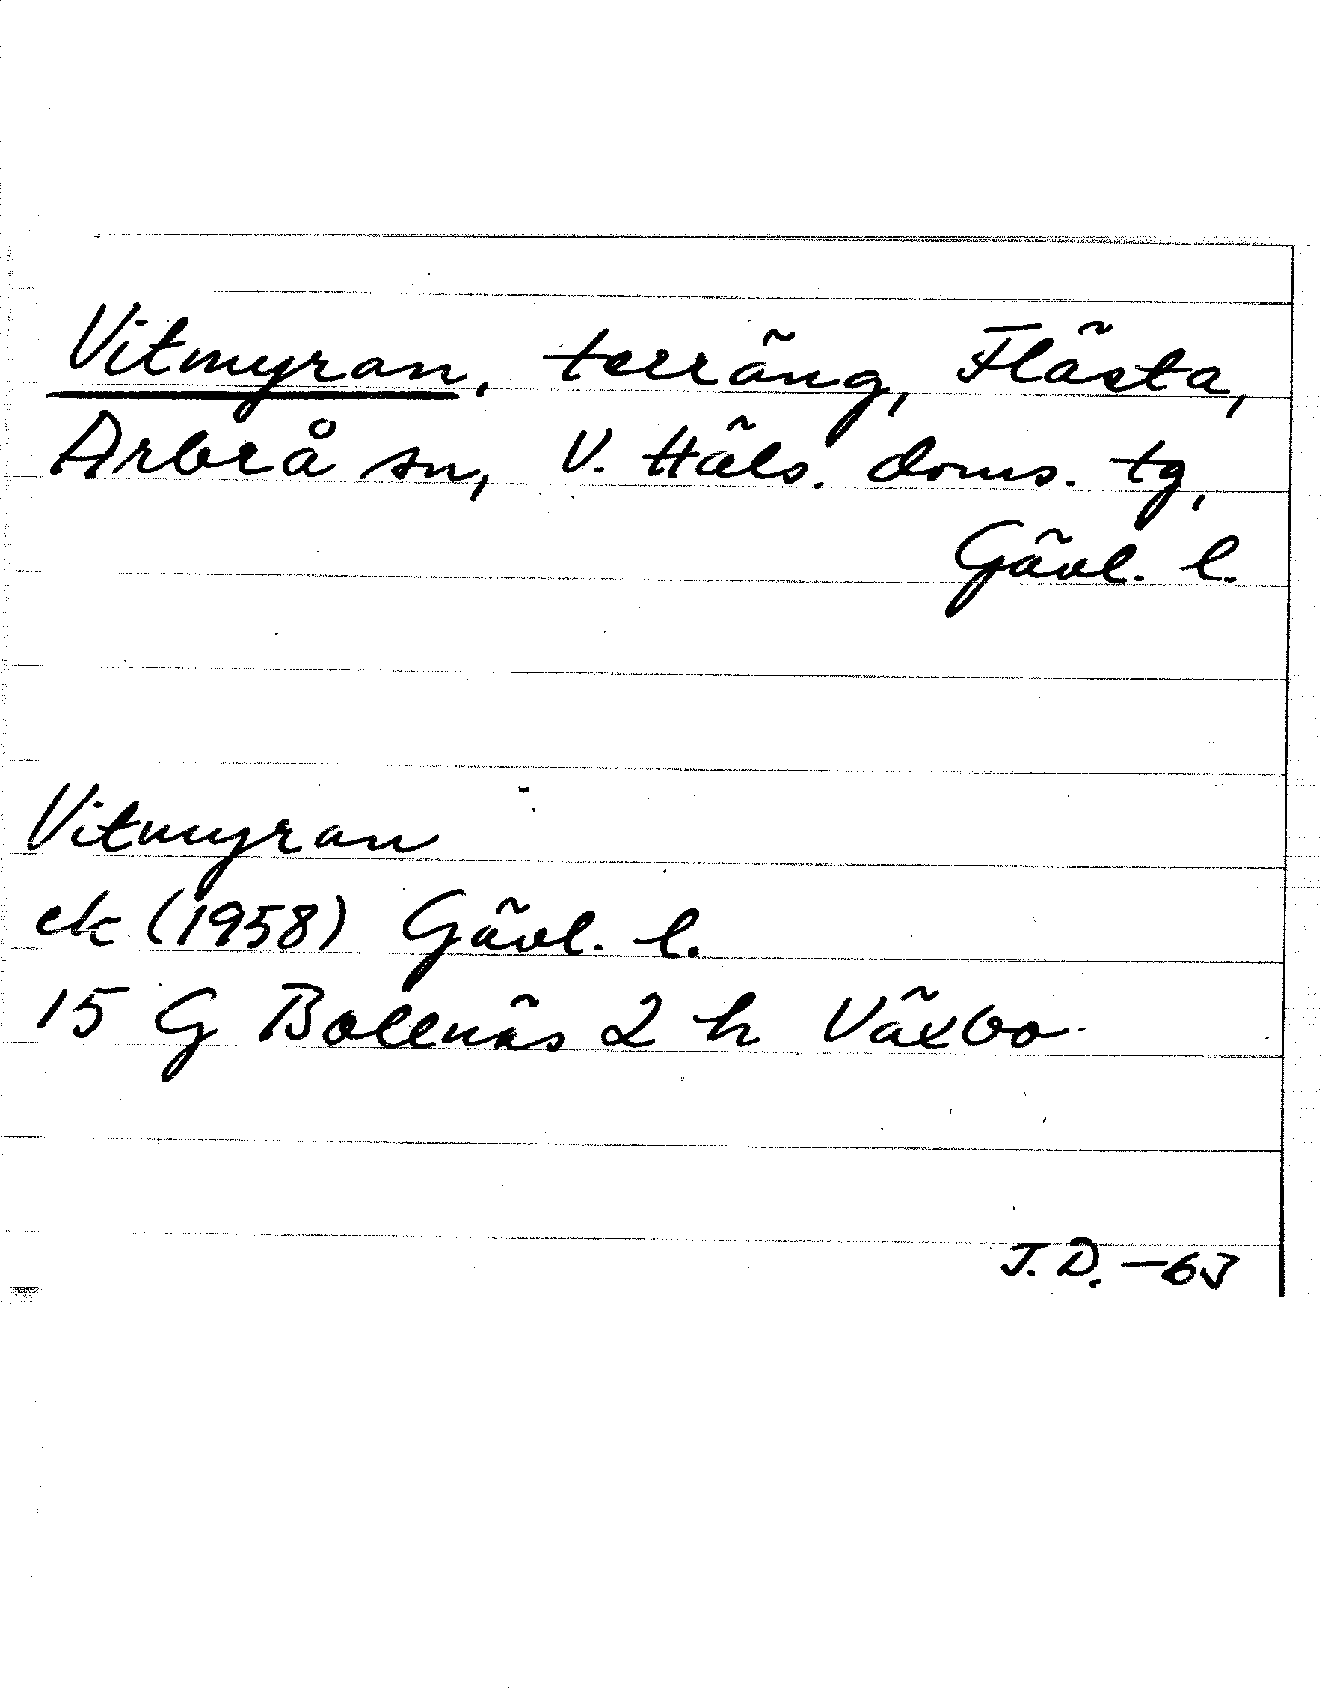 Vitmyran, terräng, Flästa,
Arbrå sn, V. Häls. doms. tg,
Gävl. l.
Vitmyran
ek (1958) Gävl. l.
15 G Bollnäs 2 h Växbo
J.D. -63